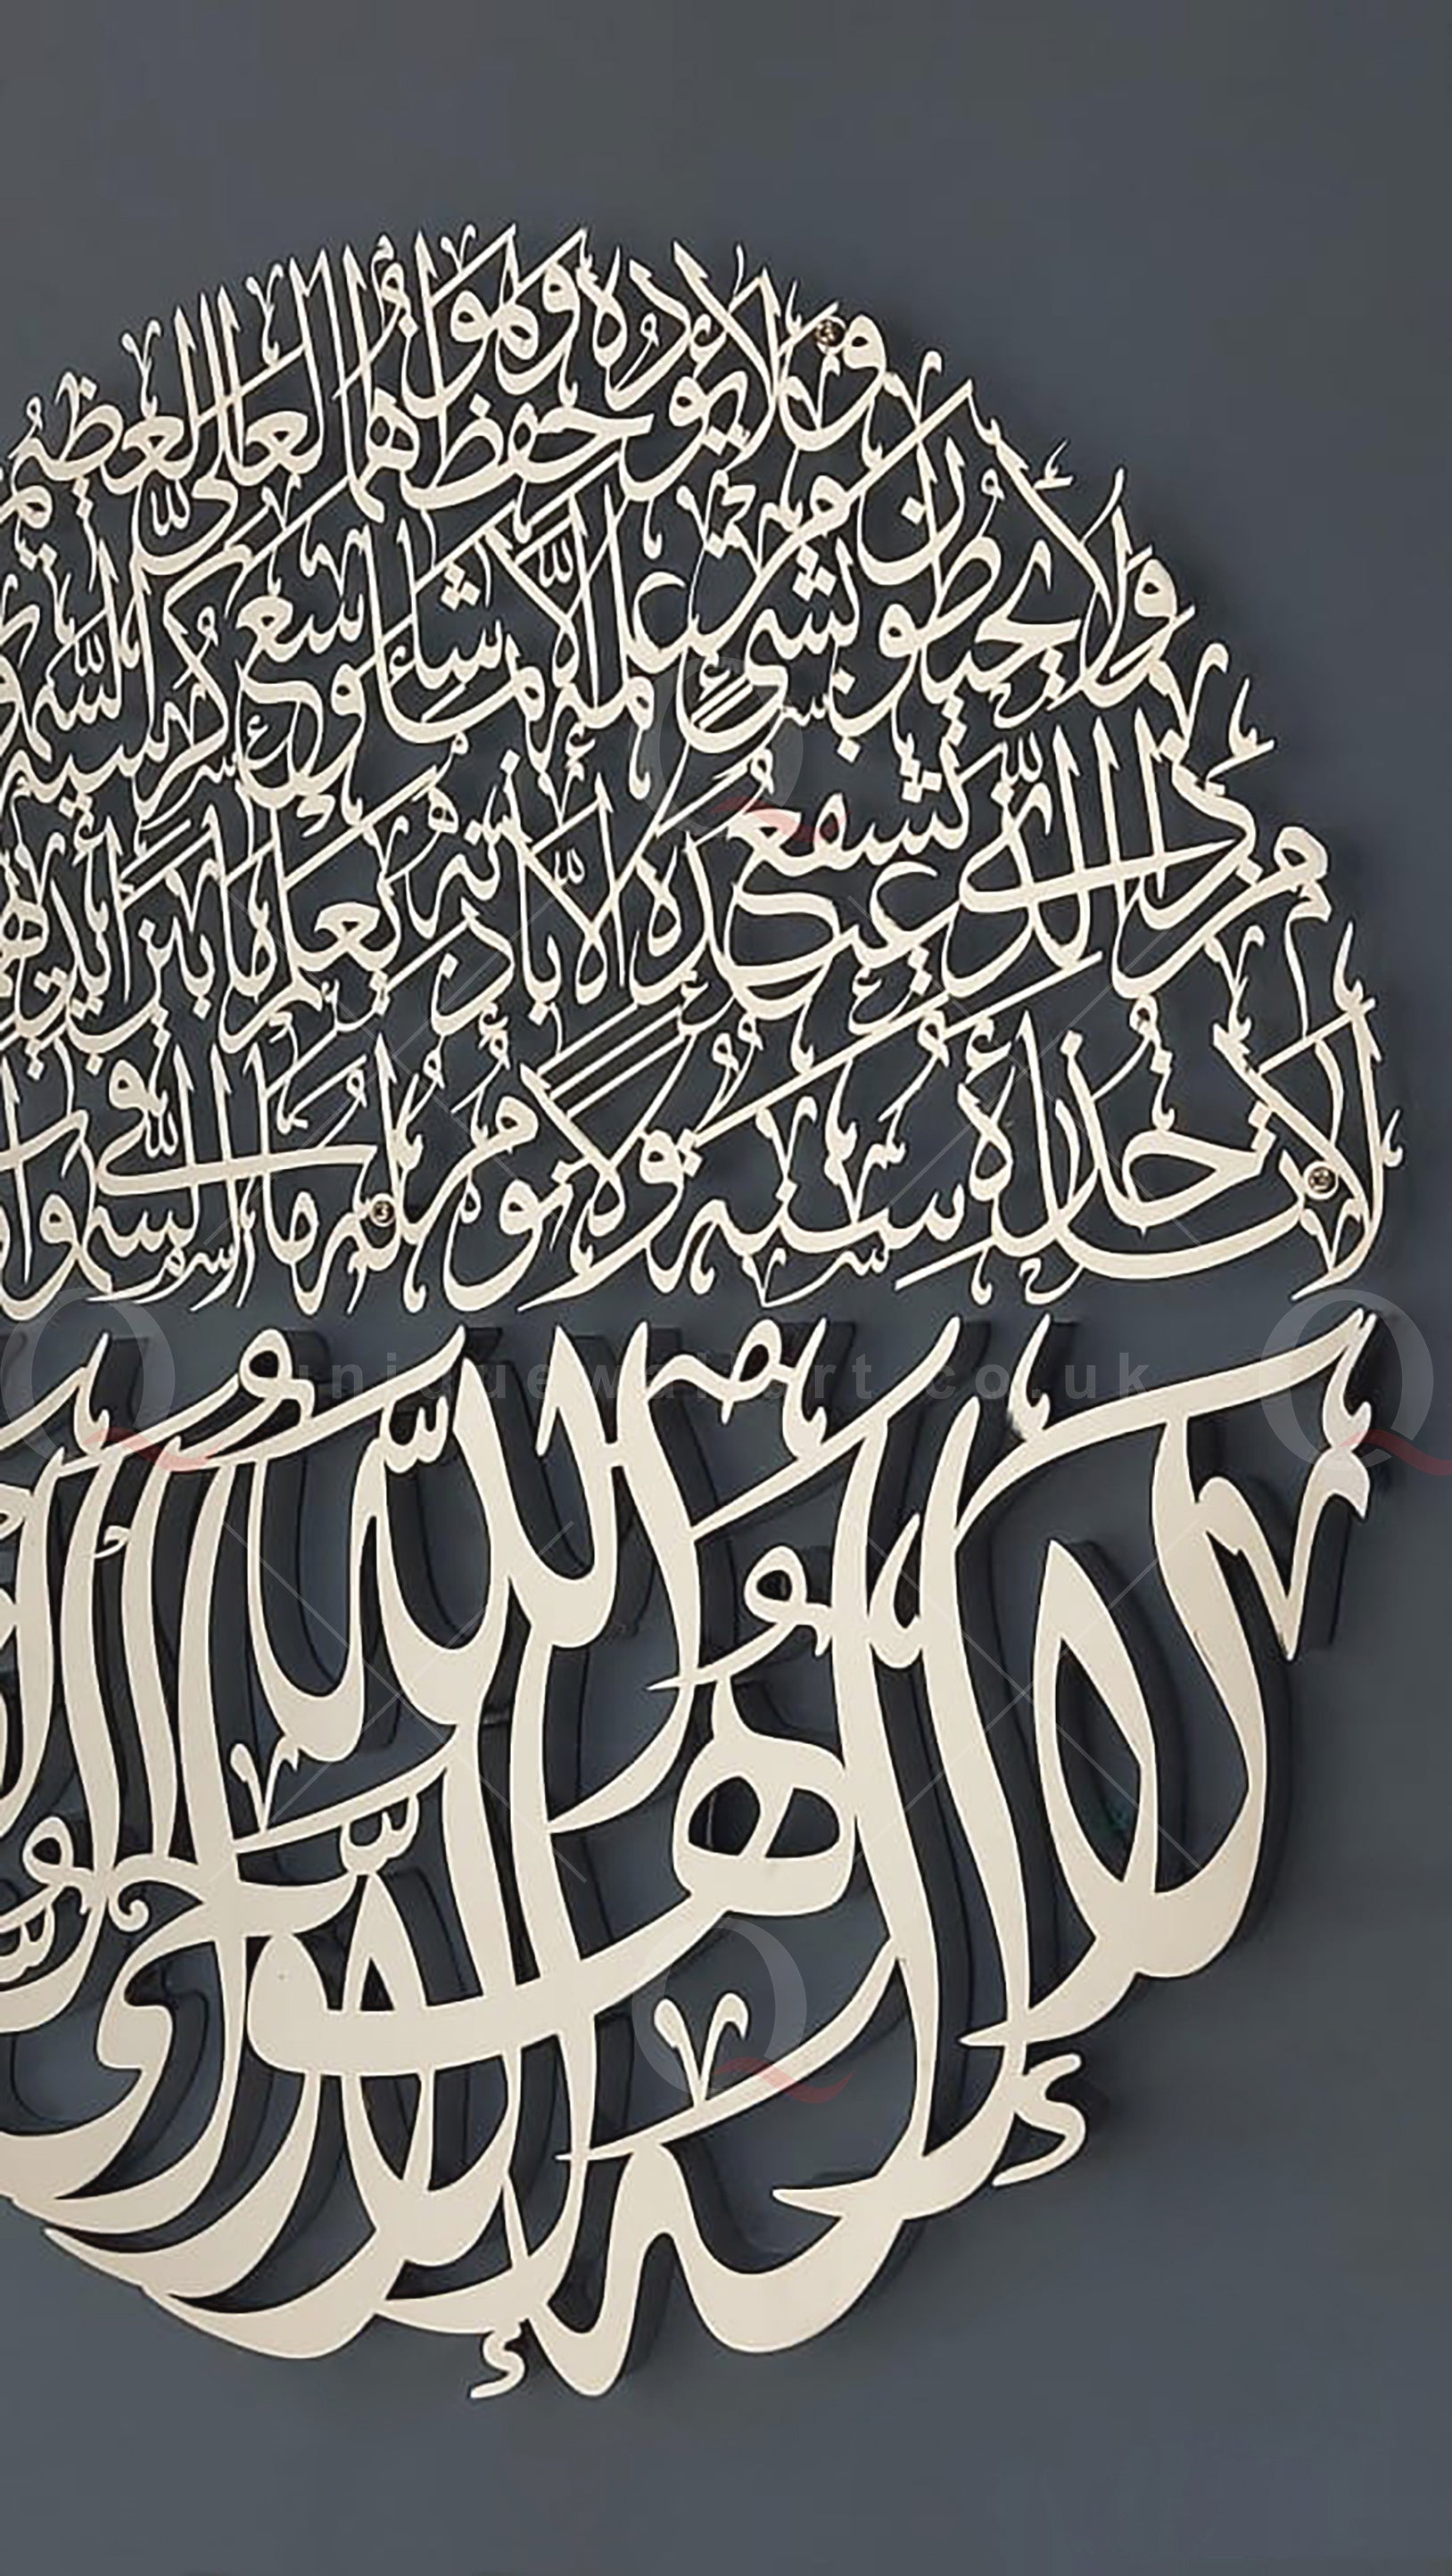 ولا يؤده حفظهما وهو العلي العظيم
ولا يحيطون بشيء من علمه إلا بما شاء وسع كرسيه السم
من ذا الذي يشفع عنده إلا بإذنه يعلم ما بين أيديهم
لا تأخذه سنة ولا نوم له ما في السم
uniquewallart.co.uk
الله لا إله إلا هو الحي القيوم